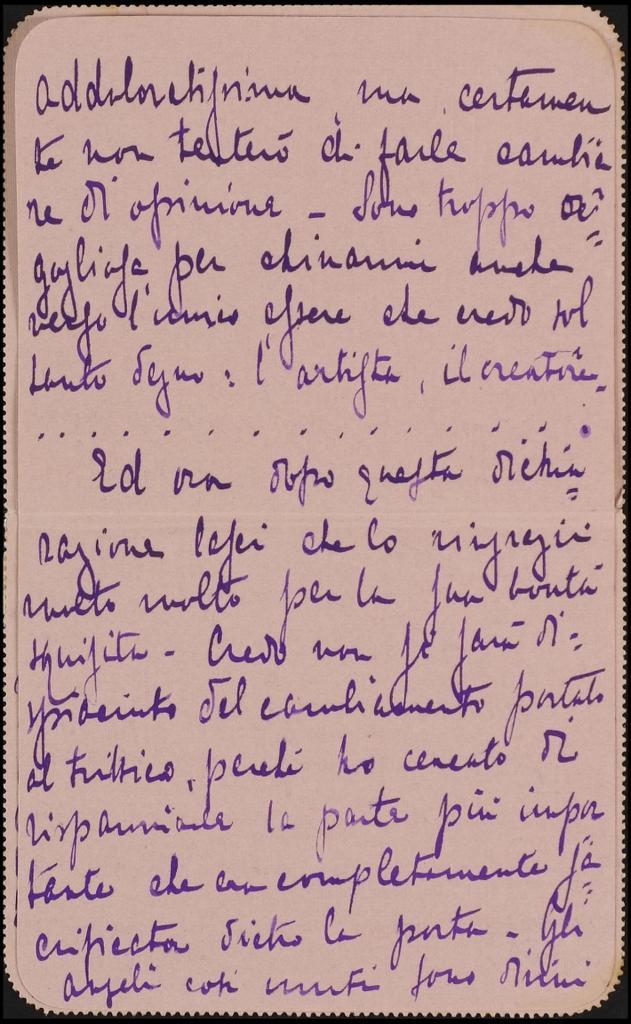 addoloratissima, ma certamen
te non tenterò di farle cambia
re di opinione - Sono troppo or=
gogliosa per chinarmi anche
verso l'unico essere che credo sol
tanto degno: l'artista, il creatore.
. . . . . . . . . . . . . .
Ed ora dopo questa dichia=
razione lasci che lo ringrazii
molto molto per la sua bontà
squisita - Credo non si sarà di=
spiaciuto del cambiamento portato
al trittico, perchè ho cercato di
risparmiare la parte più impor
tante che era completamente sa=
crificata dietro la porta - Gli
angeli così uniti sono divini